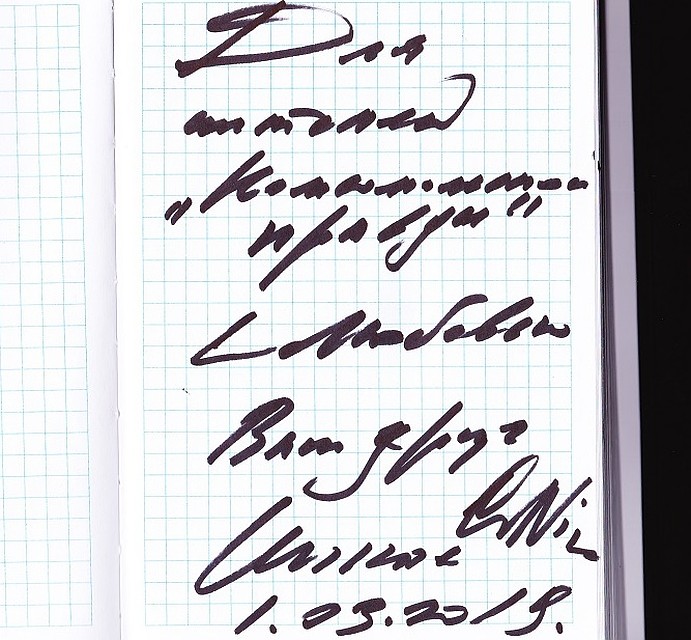 Для
читателей
„Комсомольской
правды“
С Любовью
Ваш друг
1.03.2019.